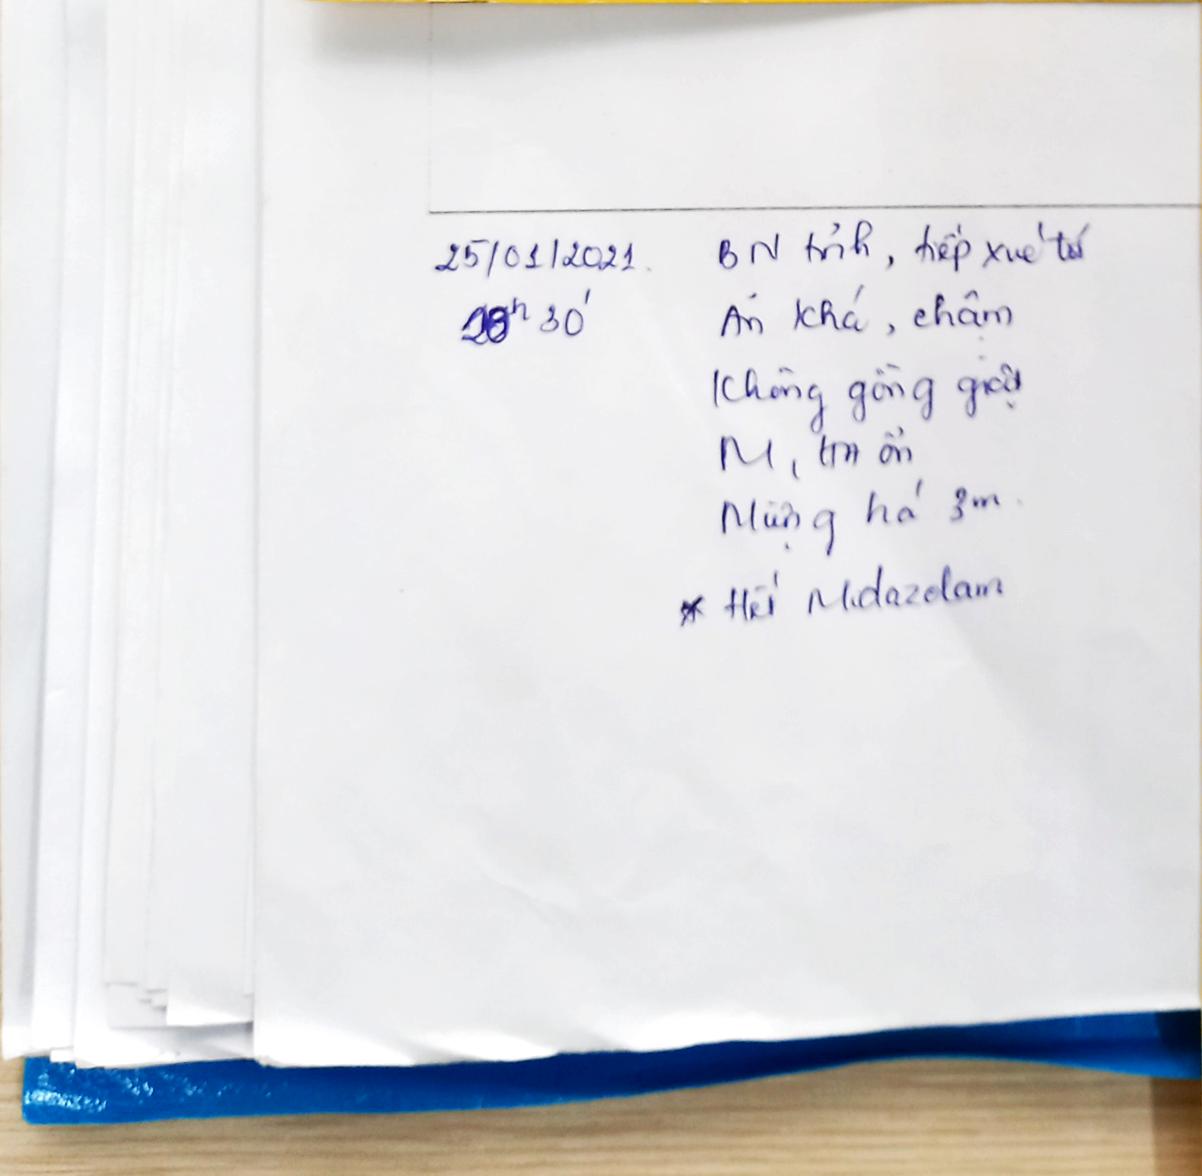 25/01/2021. BN tỉnh, tiếp xúc tốt
30' Ăn khá, chậm
Không gồng giật
M, tm ổn
Miệng há 3cm
* Hết Midazolam